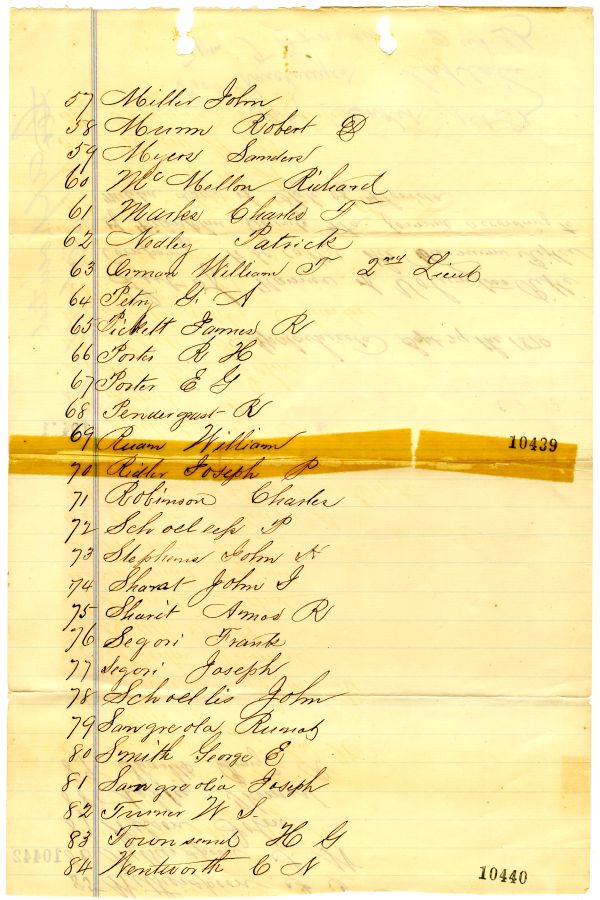 57 Miller John
58 Munn Robert D
59 Myers Sanders
60 McMellon Richard
61 Marks Charles T
62 Nedley Patrick
63 Orman William T 2nd Lieut
64 Petry G. A
65 Pickett James R
66 Porter R H
67 Porter E G
68 Pendergast R
69 Ruan William 10439
70 Ridler Joseph P
71 Robinson Charles
72 P
73 Stephens John N
74 Sharat John J
75 Sharit Amos R
76 Segori Frank
77 Segori Joseph
78 Schoellis John
79 Sangreola
80 Smith George E
81 Sangreolia Joseph
82 Turner W S.
83 Townsend H G
84 Wentworth C N
10440